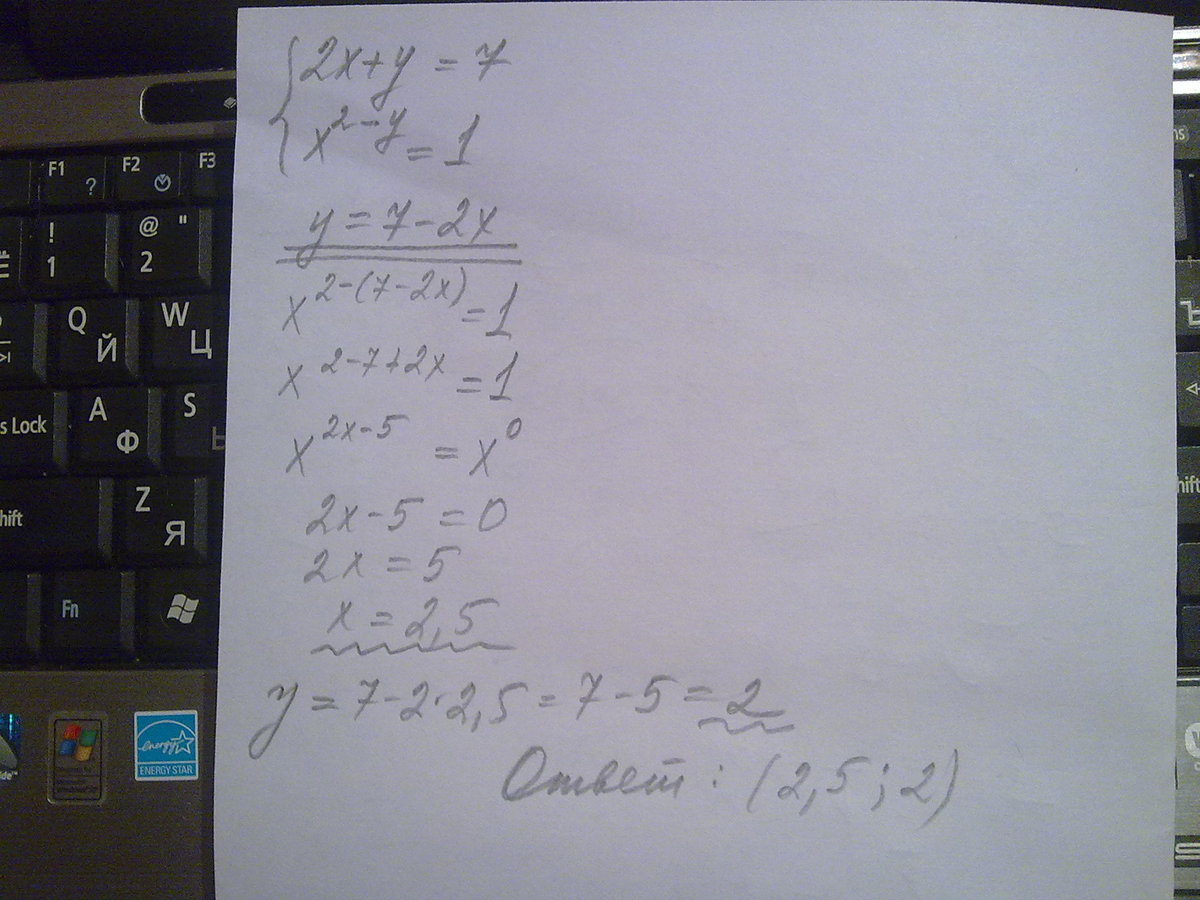 2x+y = 7
x^{2-y} = 1
y = 7-2x
x^{2-(7-2x)} = 1
x^{2-7+2x} = 1
x^{2x-5} = x^0
2x-5 = 0
2x = 5
x = 2,5
y = 7-2·2,5 = 7-5 = 2
Ответ: (2,5; 2)
F1 F2 F3
?
! @ "
1 2
Q W
Й Ц
s Lock A S
Ф Ы
hift Z
Я
Fn
energy
ENERGY STAR